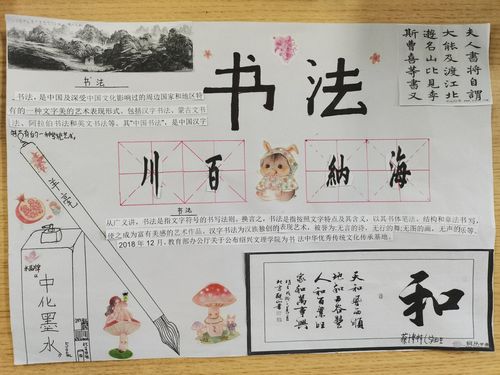 书法
夫人書將自謂
大能及渡江北
遊名山比見李
斯曹喜等書又
书法
书法，是中国及深受中国文化影响过的周边国家和地区特
有的一种文字美的艺术表现形式，包括汉字书法、蒙古文书
法、阿拉伯书法和英文书法等。其“中国书法”，是中国汉字
特有的一种传统艺术。
海納百川
羊毫
书法
从广义讲，书法是指文字符号的书写法则。换言之，书法是指按照文字特点及其含义，以其书体笔法、结构和章法书写，
使之成为富有美感的艺术作品。汉字书法为汉族独创的表现艺术，被誉为:无言的诗，无行的舞;无图的画，无声的乐等。
2018年12月，教育部办公厅关于公布绍兴文理学院为书法中华优秀传统文化传承基地。
中化墨水
和
天和風雨順
地和五谷豐
人和百業旺
家和萬事興